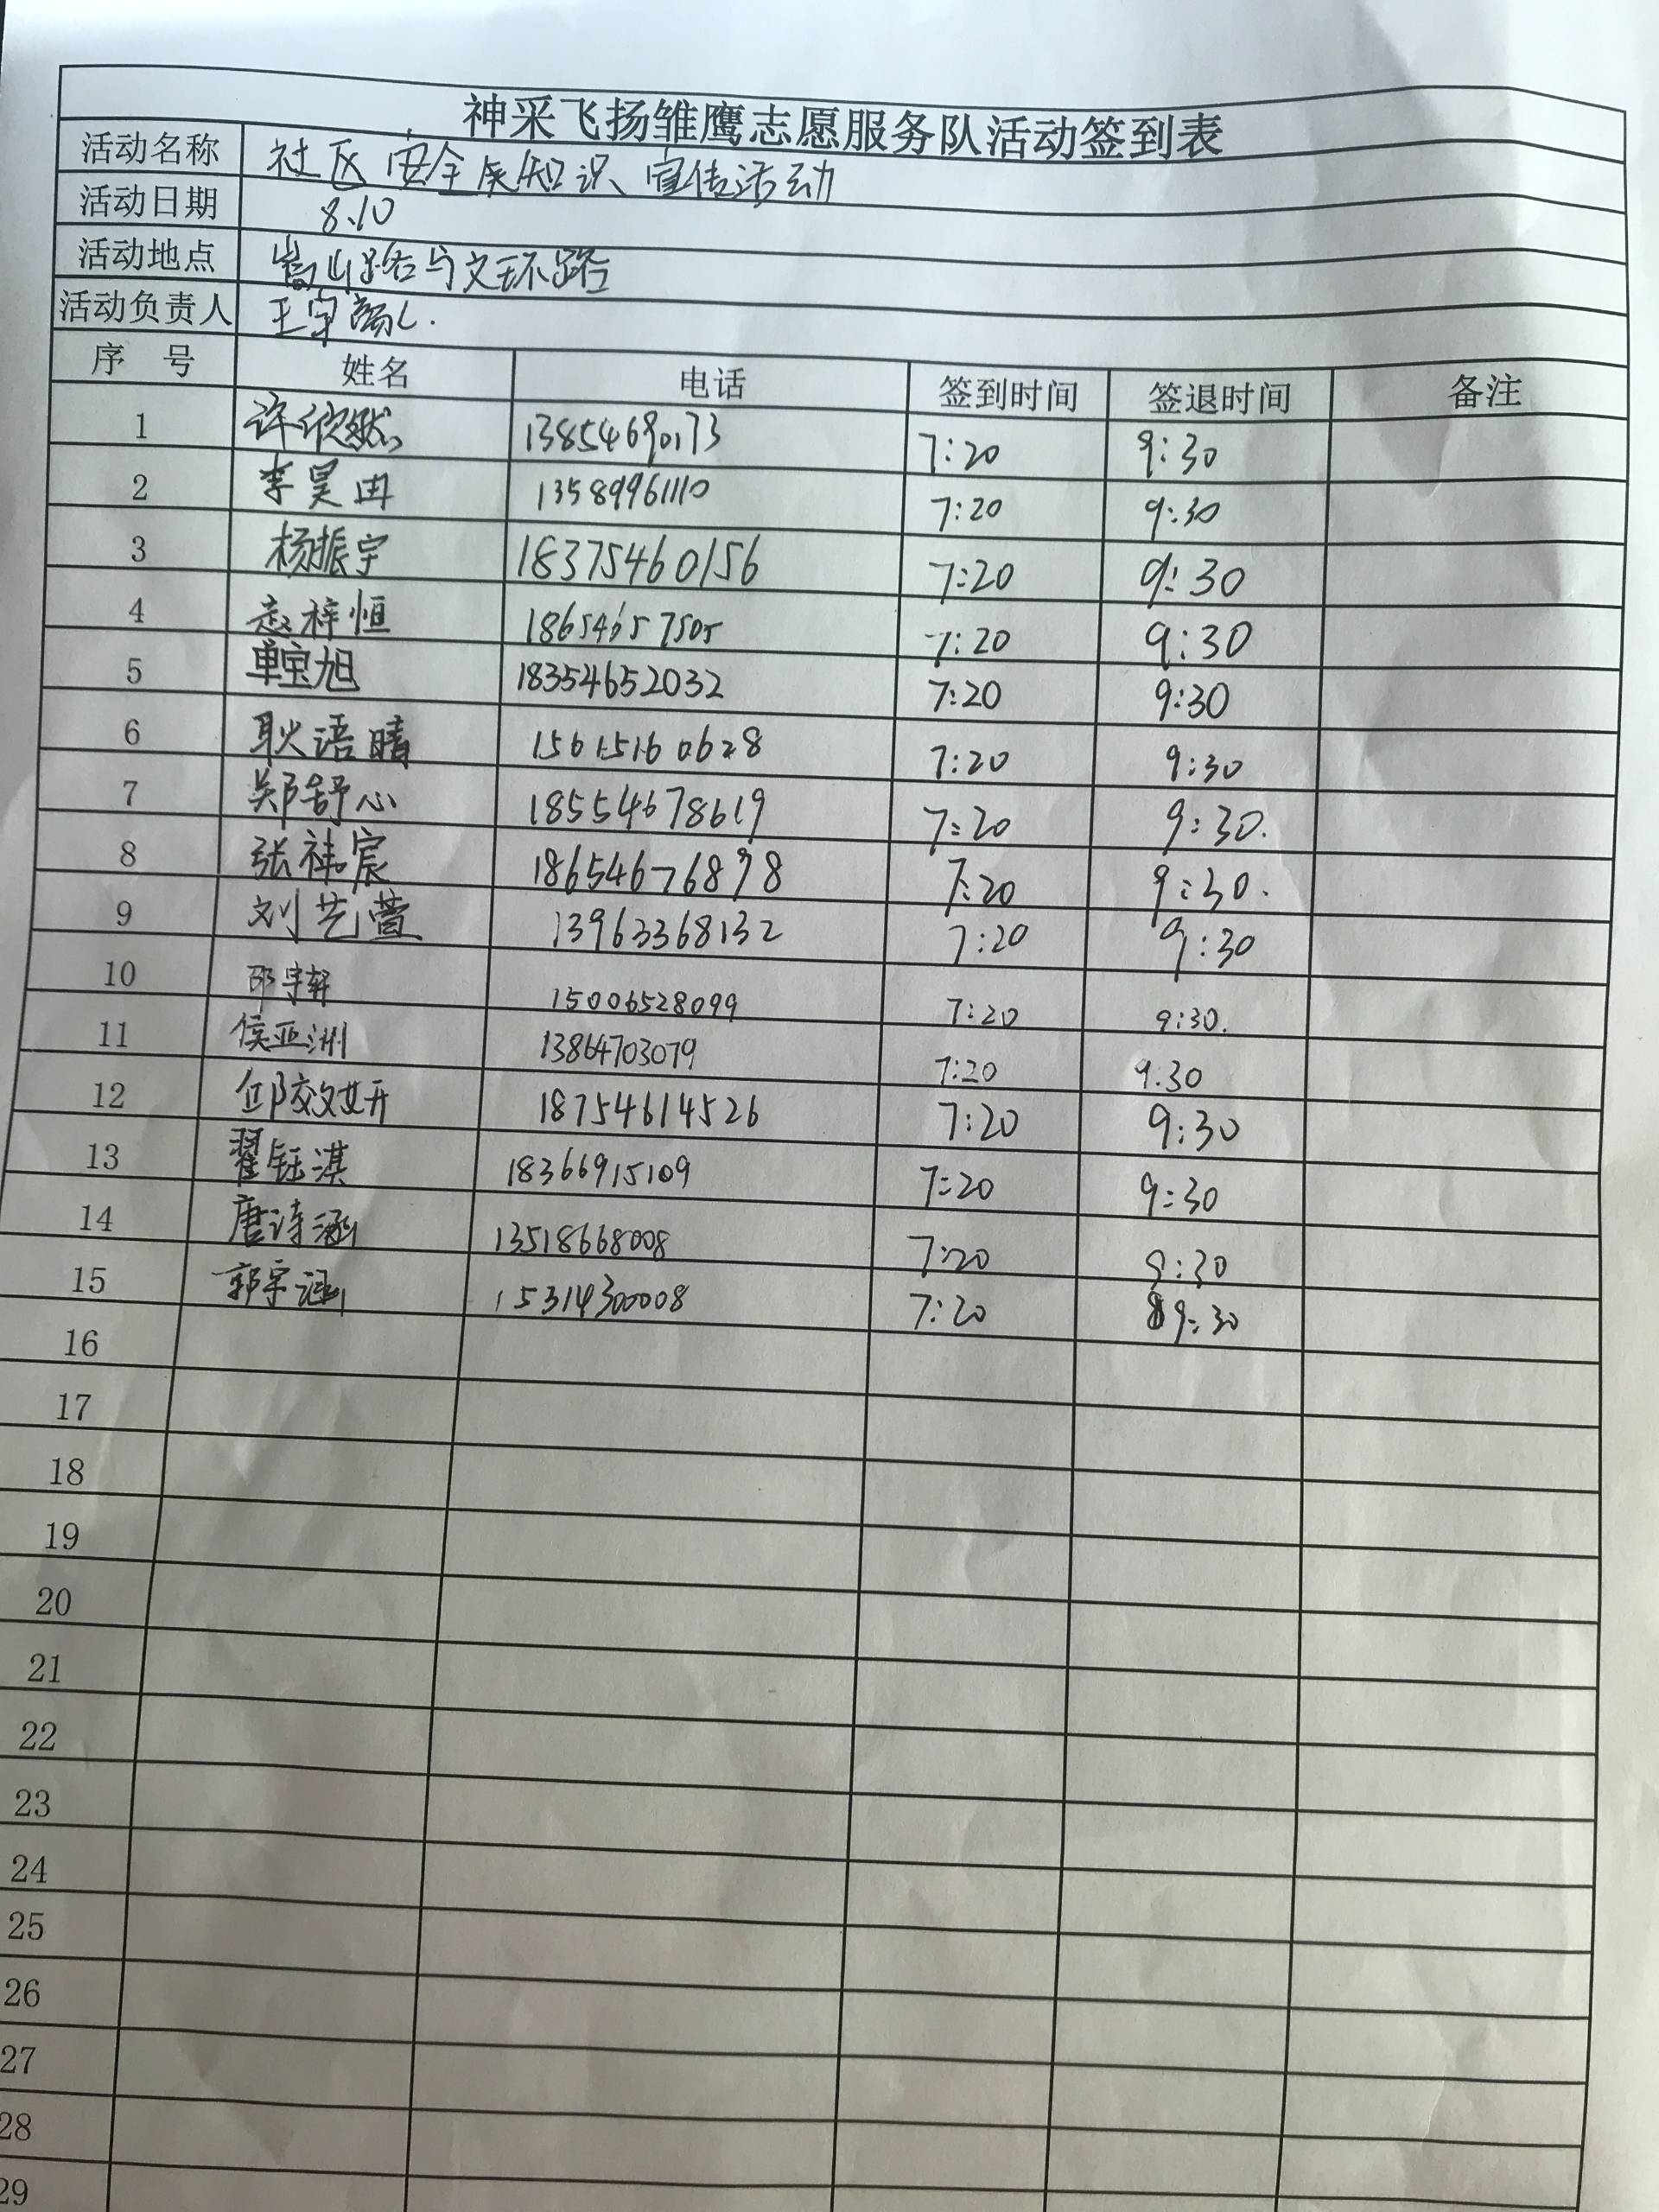 神采飞扬雏鹰志愿服务队活动签到表
活动名称 社区安全知识宣传活动
活动日期 8.10
活动地点 嵩山路与文环路
活动负责人 王宇
序号 姓名 电话 签到时间 签退时间 备注
1 许欣然 13854690173 7:20 9:30
2 李昊冉 13589961110 7:20 9:30
3 杨振宇 18375460156 7:20 9:30
4 赵梓恒 18654657505 7:20 9:30
5 单宝旭 18354652032 7:20 9:30
6 耿语晴 15615160628 7:20 9:30
7 郑舒心 18554678619 7:20 9:30.
8 张祎宸 18654676898 7:20 9:30.
9 刘艺萱 13963368132 7:20 9:30
10 邵宇轩 15006528099 7:20 9:30.
11 侯亚洲 13864703079 7:20 9.30
12 邱姣妍 18754614526 7:20 9:30
13 翟钰淇 18366915109 7:20 9:30
14 唐诗涵 13518668008 7:20 9:30
15 郭宇涵 15314300008 7:20 9:30
16
17
18
19
20
21
22
23
24
25
26
27
28
29